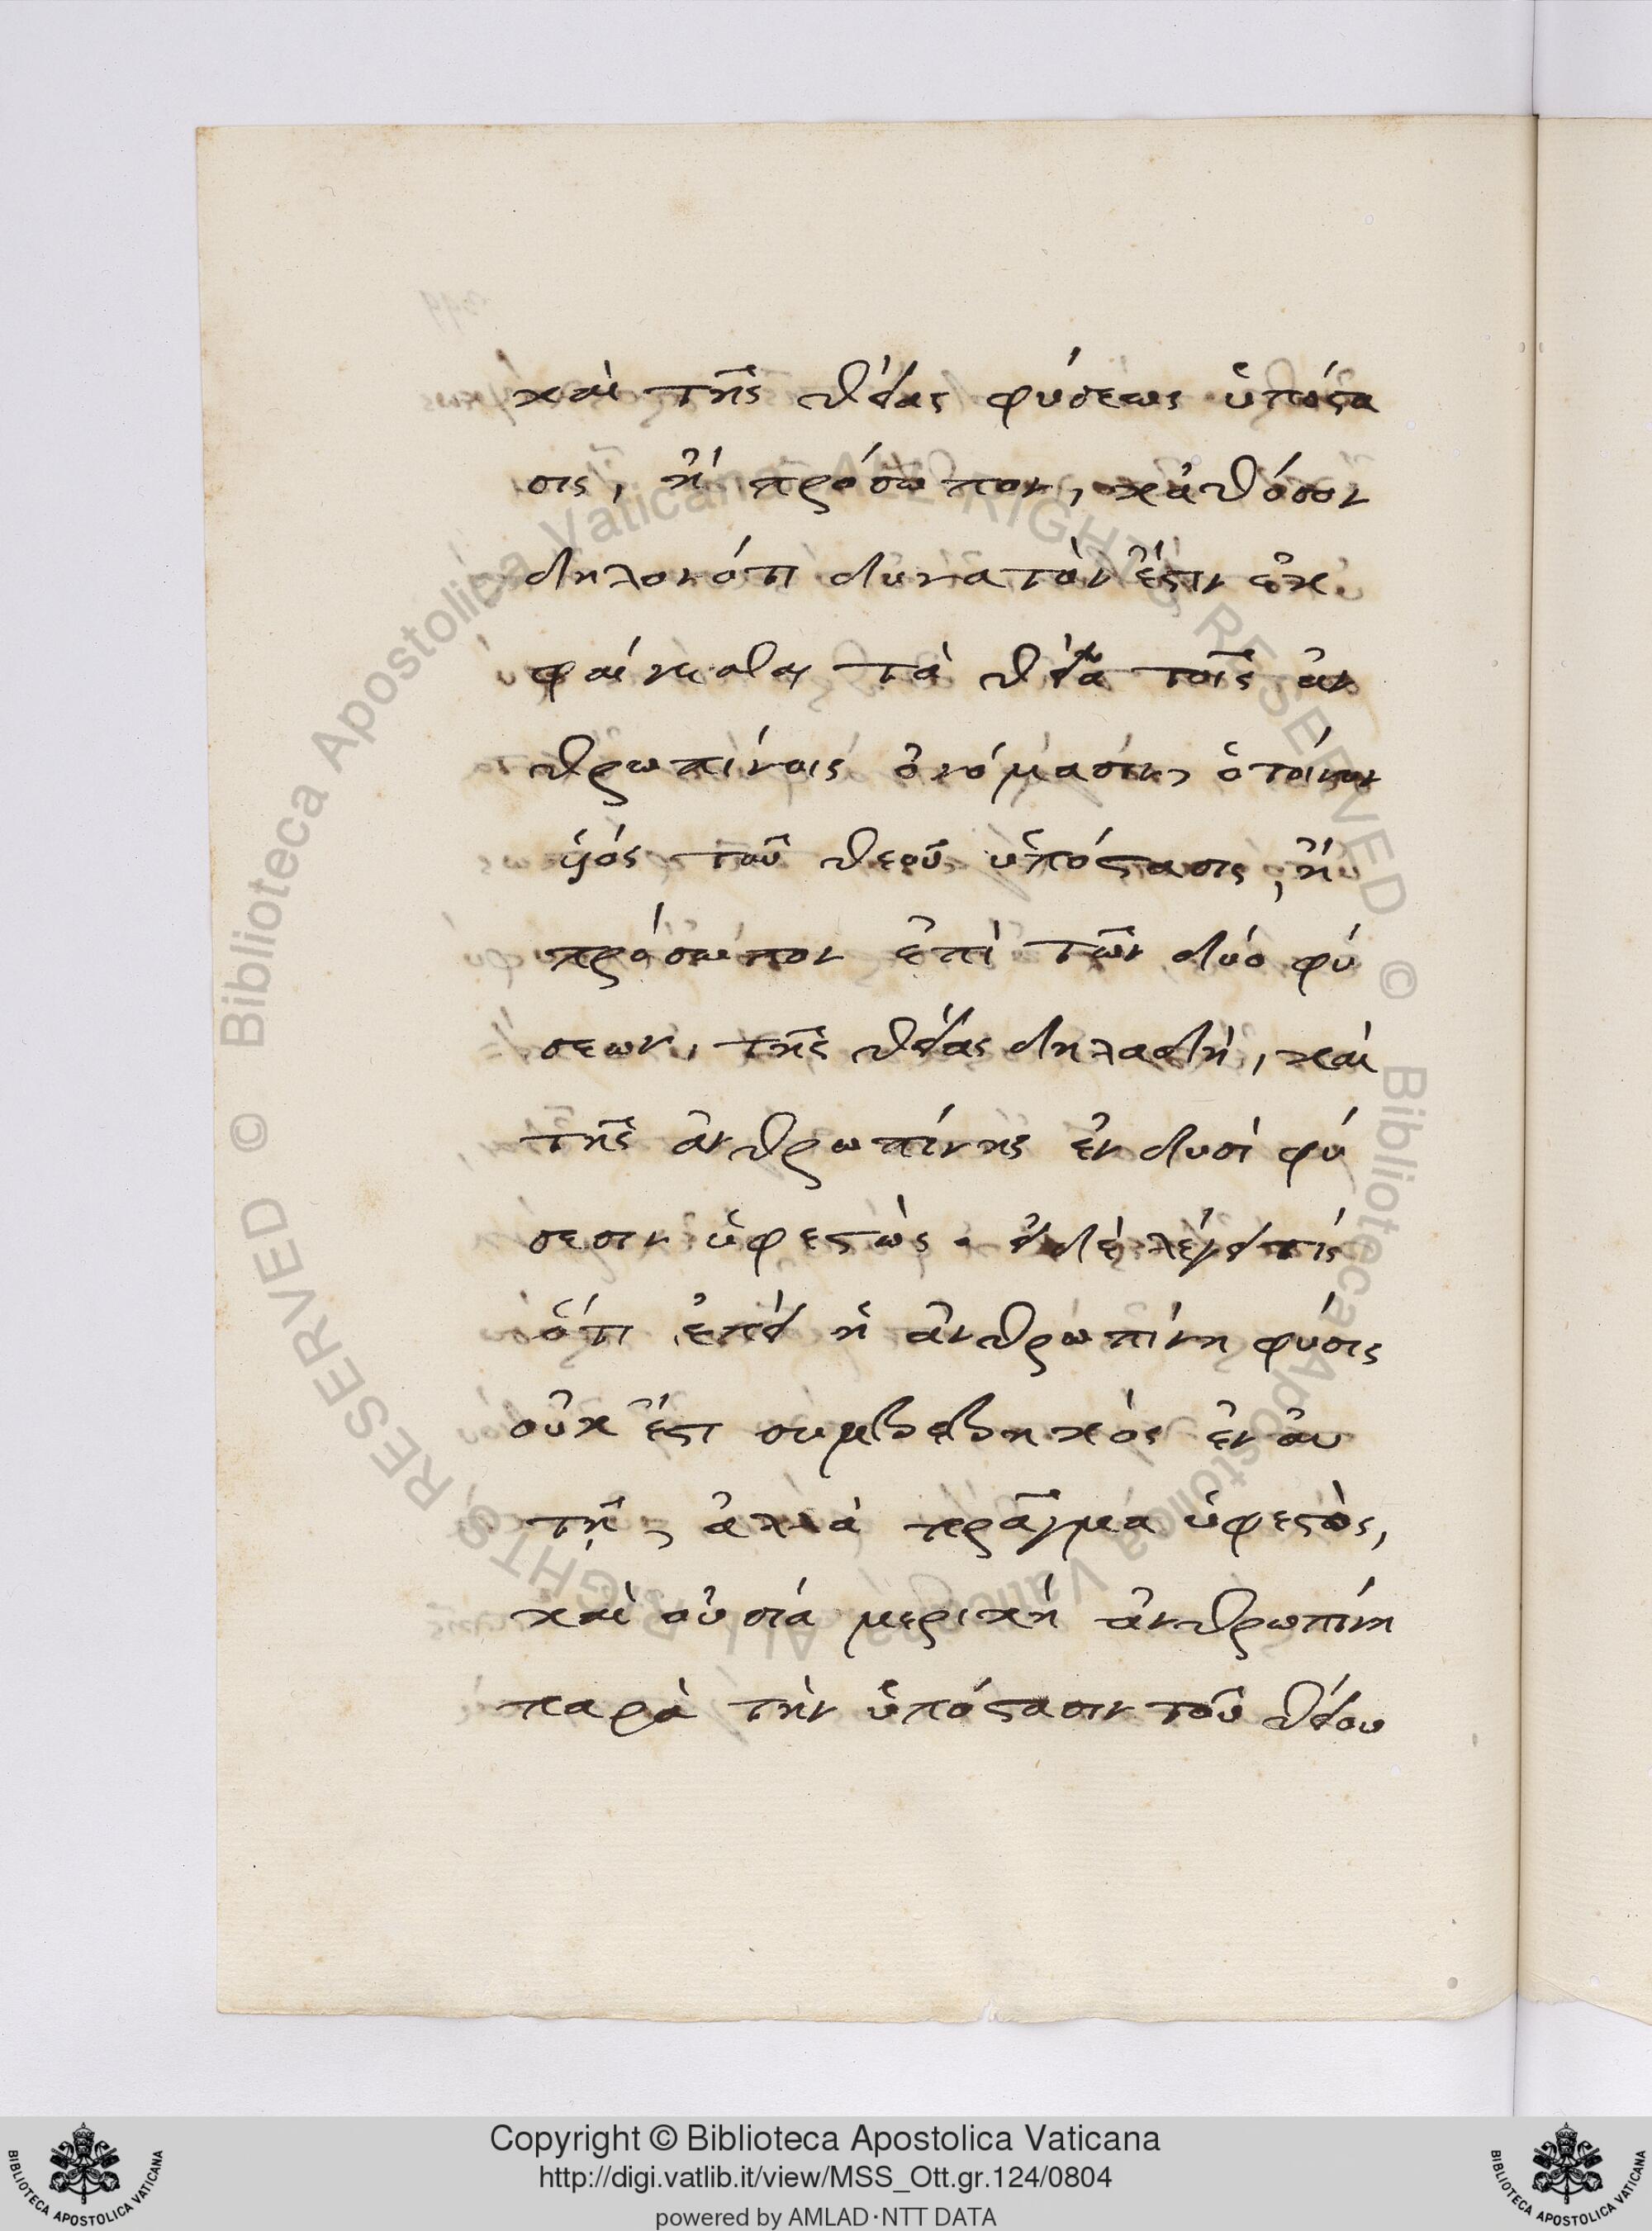 καὶ τῆς θείας φύσεως ὑπόστα
σις, ἢ πρόσωπον, καθόσον
δηλονότι δυνατόν ἐστιν ἐκ
φαίνεσθαι τὰ θεῖα τοῖς ἀν
θρωπίνοις ὀνόμασιν, ὁ τοίνυν
υἱός τοῦ θεοῦ ὑπόστασις, ἢ
πρόσωπον ἐπὶ τῶν δύο φύ
σεων, τῆς θείας δηλαδή, καὶ
τῆς ἀνθρωπίνης ἐν δυσὶ φύ
σεσιν ὑφεστὼς. εἰ δὲ λέγει τίς
ὅτι ἐπεὶ ἡ ἀνθρωπίνη φύσις
οὐκ ἔστι συμβεβηκὸς ἐν αὐ
τῇ, ἀλλὰ πρᾶγμα ὑφεστὸς,
καὶ οὐσία μερικὴ ἀνθρωπίνη
παρὰ τὴν ὑπόστασιν τοῦ θείου
Copyright © Biblioteca Apostolica Vaticana
http://digi.vatlib.it/view/MSS_Ott.gr.124/0804
powered by AMLAD·NTT DATA
BIBLIOTECA APOSTOLICA VATICANA
BIBLIOTECA APOSTOLICA VATICANA
© Biblioteca Apostolica Vaticana ALL RIGHTS RESERVED
© Biblioteca Apostolica Vaticana ALL RIGHTS RESERVED